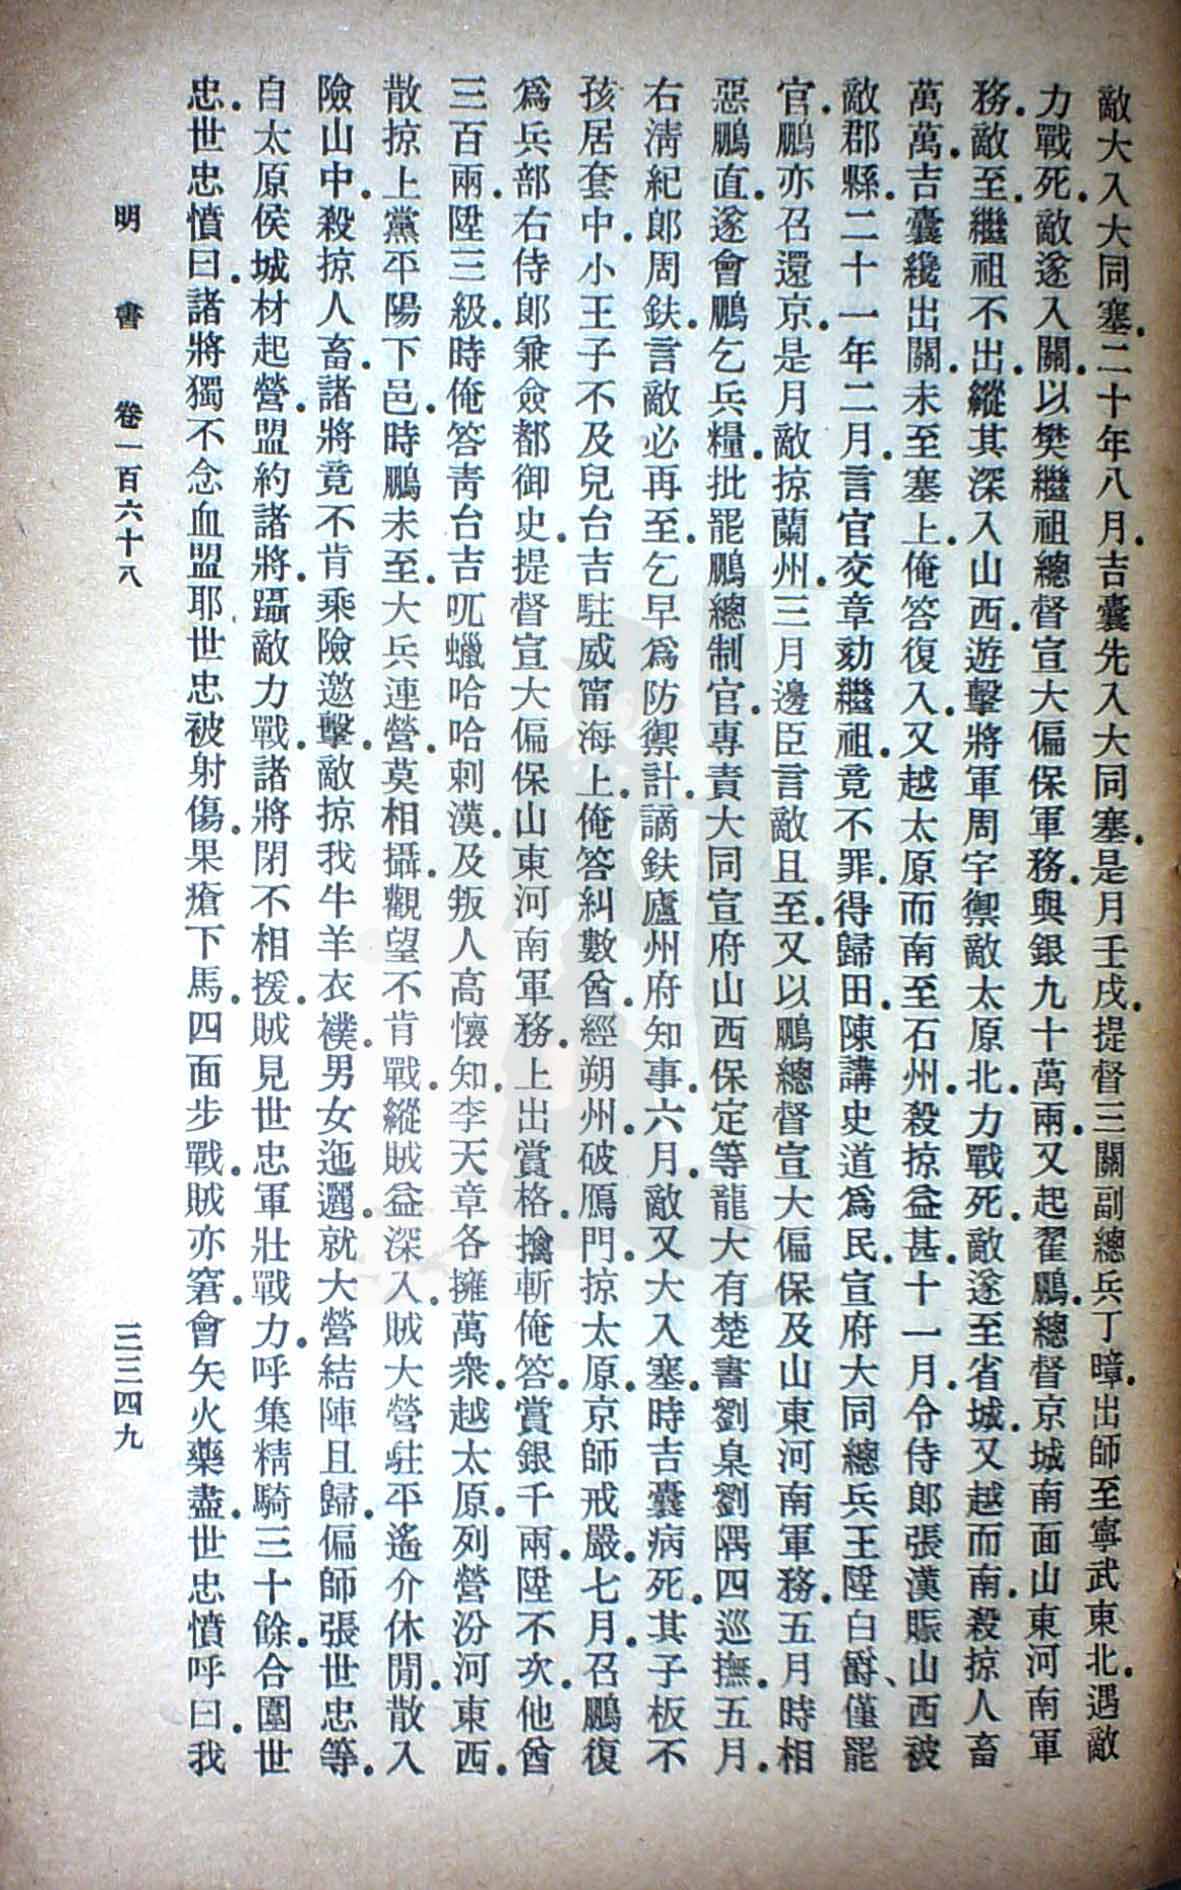 敵大入大同塞.二十年八月.吉囊先入大同塞.是月壬戌.提督三關副總兵丁暲.出師至寧武東北.遇敵
力戰死.敵遂入關.以樊繼祖總督宣大偏保軍務.與銀九十萬兩.又起翟鵬.總督京城南面山東河南軍
務.敵至.繼祖不出.縱其深入山西.遊擊將軍周宇禦敵太原北.力戰死.敵遂至省城.又越而南.殺掠人畜
萬萬.吉囊纔出關.未至塞上.俺答復入.又越太原而南.至石州.殺掠益甚.十一月.令侍郎張漢賑山西被
敵郡縣.二十一年二月.言官交章劾繼祖.竟不罪.得歸田.陳講史道爲民.宣府大同總兵王陞白爵、僅罷
官.鵬亦召還京.是月敵掠蘭州.三月邊臣言敵且至.又以鵬總督宣大偏保及山東河南軍務.五月時相
惡鵬直.遂會鵬乞兵糧.批罷鵬總制官.專責大同宣府山西保定等龍大有楚書劉臬劉隅四巡撫.五月.
右淸紀郎周鈇.言敵必再至.乞早爲防禦計.謫鈇廬州府知事.六月.敵又大入塞.時吉囊病死.其子板不
孩居套中.小王子不及兒台吉駐威甯海上.俺答糾數酋.經朔州.破鴈門.掠太原.京師戒嚴.七月.召鵬復
爲兵部右侍郎兼僉都御史.提督宣大偏保山東河南軍務.上出賞格.擒斬俺答.賞銀千兩.陞不次.他酋
三百兩.陞三級.時俺答靑台吉呃蠟哈哈刺漢.及叛人高懷知.李天章各擁萬衆.越太原.列營汾河東西.
散掠上黨平陽下邑.時鵬未至.大兵連營.莫相攝.觀望不肯戰.縱賊益深入.賊大營駐平遙介休閒.散入
險山中.殺掠人畜.諸將竟不肯乘險邀擊.敵掠我牛羊衣襆.男女迤邐.就大營結陣且歸.偏師張世忠等.
自太原侯城材起營.盟約諸將.躡敵力戰.諸將閉不相援.賊見世忠軍壯戰力.呼集精騎三十餘.合圍世
忠.世忠憤曰.諸將獨不念血盟耶.世忠被射傷.果瘡下馬.四面步戰.賊亦窘.會矢火藥盡.世忠憤呼曰.我
明書 卷一百六十八 三三四九